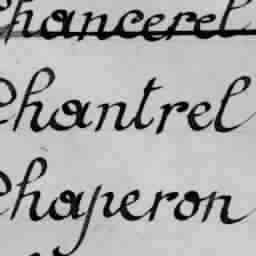 Chancerel
Chantrel
Chaperon